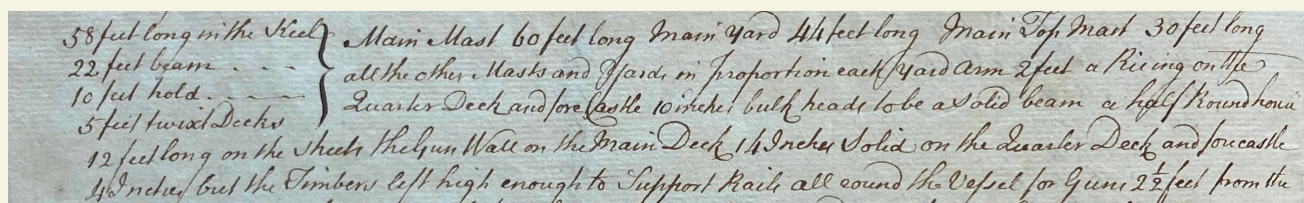 58 feet long in the Keel } Main Mast 60 feet long Main Yard 44 feet long Main Top Mast 30 feet long
22 feet beam - - - all the other Masts and Yards in proportion each Yard Arm 2 feet a Riseing on the
10 feet hold - - - Quarter Deck and fore Castle 10 inches bulk heads to be a Solid beam a half Round house
5 feet twixt Decks
12 feet long on the sheets the Gun Wall on the Main Deck 14 Inches Solid on the Quarter Deck and forecastle
4 Inches but the Timbers left high enough to Support Rails all round the Vessel for Guns 2½ feet from the